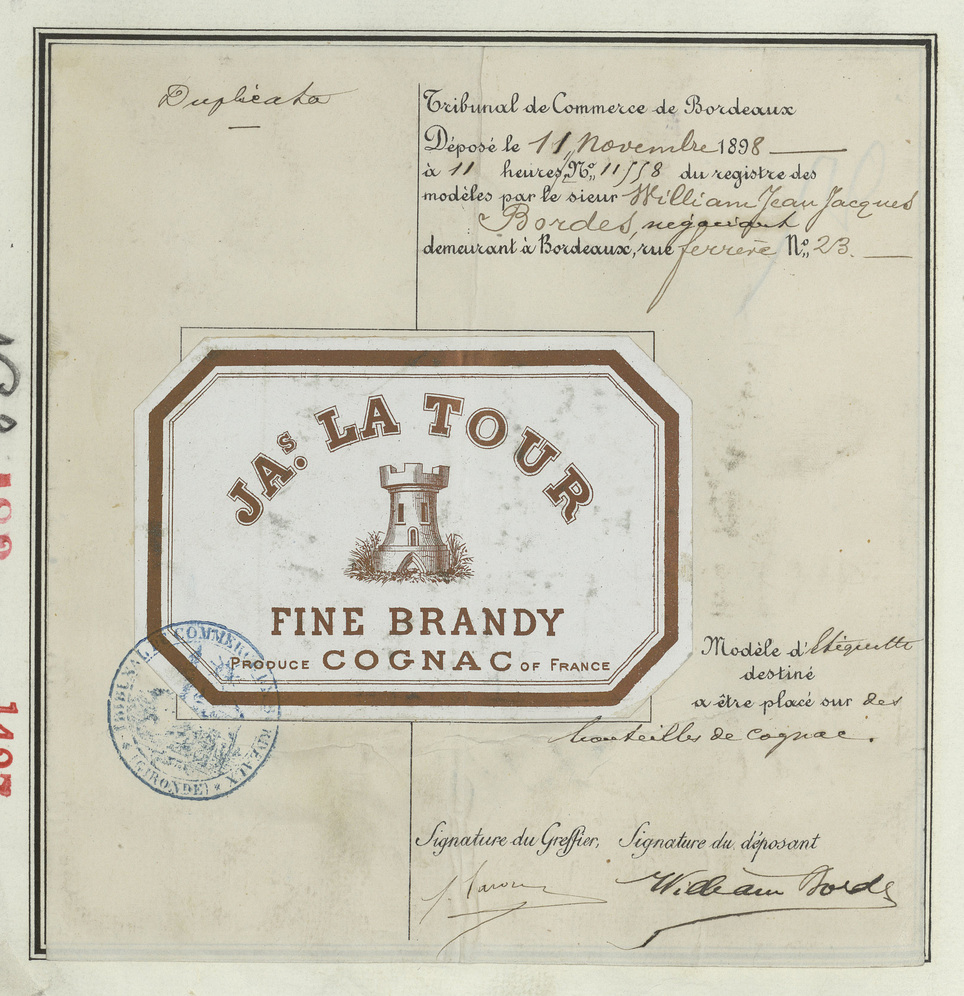 Duplicata
Tribunal de Commerce de Bordeaux
Déposé le 11 Novembre 1898
à 11 heures, No. 11558 du registre des
modèles par le sieur William Jean Jacques
Bordes, négociant
demeurant à Bordeaux, rue ferrère No. 23.
JAs. LA TOUR
FINE BRANDY
PRODUCE COGNAC OF FRANCE
TRIBUNAL DE COMMERCE DE BORDEAUX
(GIRONDE)
Modèle d'Etiquette
destiné
a être placé sur des
bouteilles de cognac.
Signature du Greffier, Signature du déposant
William Bordes